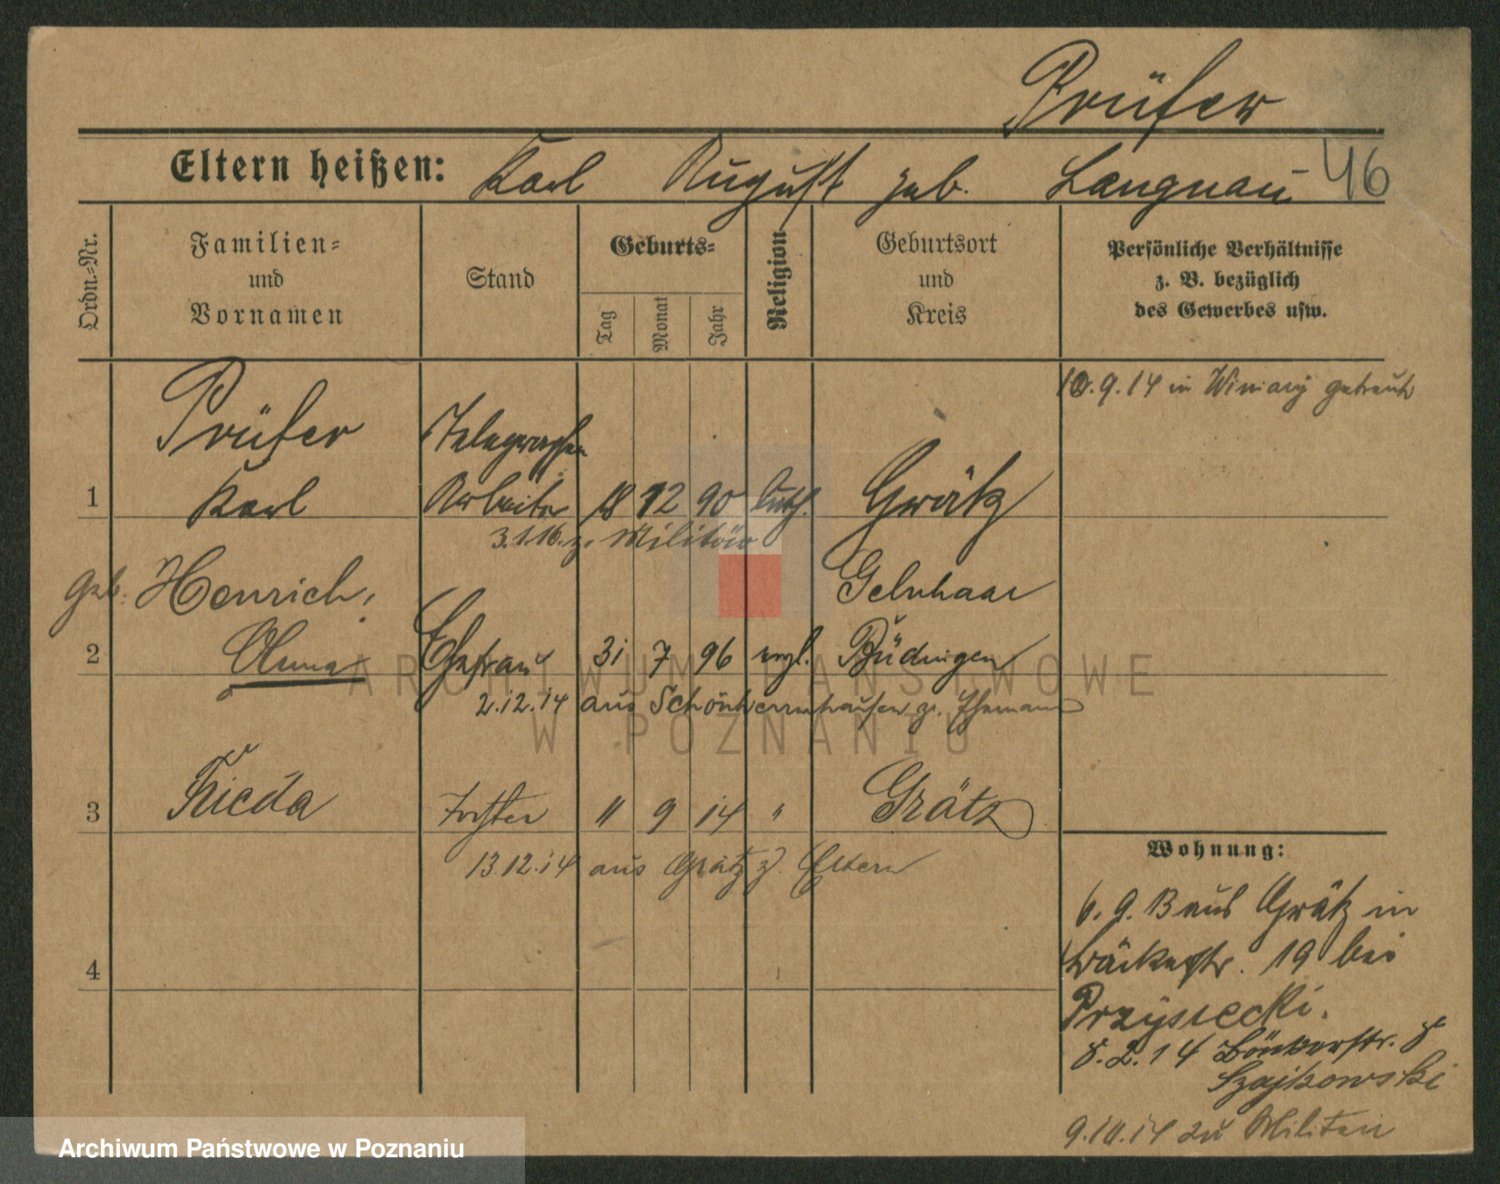 Prüfer
Eltern heißen: Karl August geb. Langnau 46
Ordn.=Nr.
Familien=
und
Vornamen
Stand
Geburts=
Tag
Monat
Jahr
Religion
Geburtsort
und
Kreis
Persönliche Verhältnisse
z. B. bezüglich
des Gewerbes usw.
10.9.14 in Winiary getraut
Prüfer Telegraphen
1 Karl Arbeiter 18 12 90 luth. Grätz
3.1.16. z. Militär
geb. Henrich, Gelnhaar
2 Ehefrau 31 7 96 evgl. Büdingen
2.12.14 aus z. Ehemann
3 Frieda Tochter 11 9 14 " Grätz
13.12.14 aus Grätz z. Eltern
4
Wohnung:
6.9.13 aus Grätz in
19 bei
Przysiecki.
8.2.14 Bäckerstr. 8
Szajkowski
9.10.14 zu Militair
ARCHIWUM PAŃSTWOWE
W POZNANIU
Archiwum Państwowe w Poznaniu